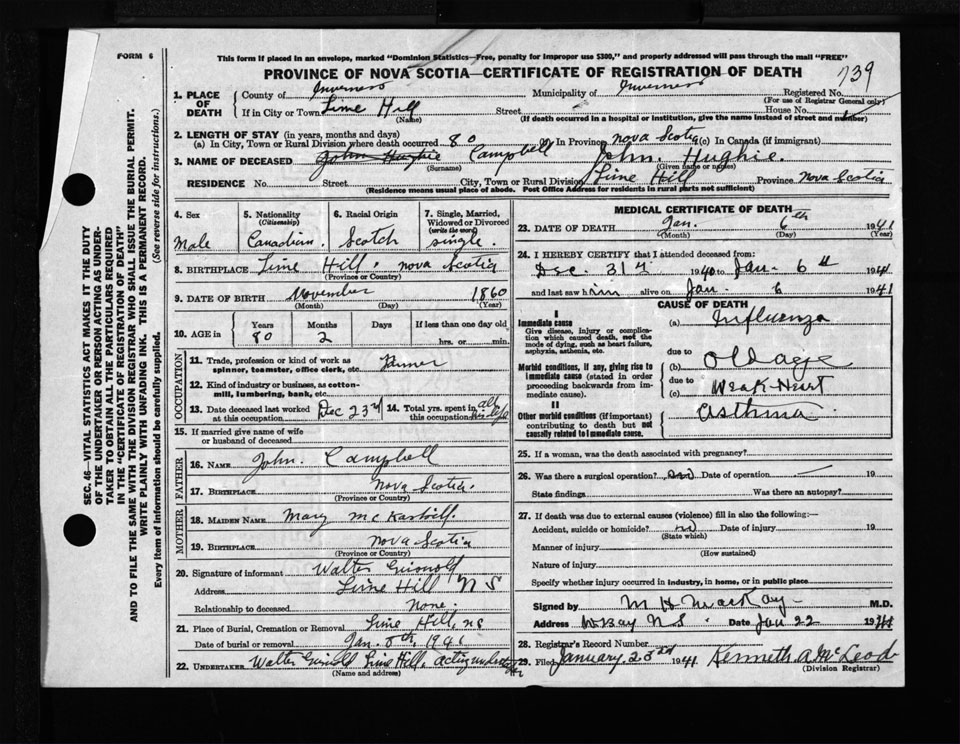 FORM 6
This form if placed in an envelope, marked "Dominion Statistics—Free, penalty for improper use $300," and properly addressed will pass through the mail "FREE"
PROVINCE OF NOVA SCOTIA—CERTIFICATE OF REGISTRATION OF DEATH
739
1. PLACE OF DEATH
County of Inverness Municipality of Inverness Registered No.
(For use of Registrar General only)
If in City or Town Lime Hill Street House No.
(Name) (If death occurred in a hospital or institution, give the name instead of street and number)
2. LENGTH OF STAY (in years, months and days)
(a) In City, Town or Rural Division where death occurred 80 (b) In Province Nova Scotia (c) In Canada (if immigrant)
3. NAME OF DECEASED John Hughie Campbell John. Hughie.
(Surname) (Given name or names)
RESIDENCE No. Street City, Town or Rural Division Lime Hill Province Nova Scotia
(Residence means usual place of abode. Post Office Address for residents in rural parts not sufficient)
4. Sex
Male
5. Nationality
(Citizenship)
Canadian.
6. Racial Origin
Scotch
7. Single, Married, Widowed or Divorced
(write the word)
single.
8. BIRTHPLACE Lime Hill. Nova Scotia
(Province or Country)
9. DATE OF BIRTH November 1860
(Month) (Day) (Year)
10. AGE in
Years Months Days If less than one day old
80 2 hrs. or min.
OCCUPATION
11. Trade, profession or kind of work as spinner, teamster, office clerk, etc. Farmer
12. Kind of industry or business, as cotton-mill, lumbering, bank, etc.
13. Date deceased last worked at this occupation Dec 23rd 14. Total yrs. spent in this occupation all his life
15. If married give name of wife or husband of deceased
FATHER
16. NAME John. Campbell
17. BIRTHPLACE Nova Scotia.
(Province or Country)
MOTHER
18. MAIDEN NAME Mary
19. BIRTHPLACE Nova Scotia
(Province or Country)
20. Signature of informant Walter
Address Lime Hill N S
Relationship to deceased None.
21. Place of Burial, Cremation or Removal Lime Hill, NS
Date of burial or removal Jan. 8th, 1941
22. UNDERTAKER Walter Lime Hill, acting
(Name and address)
MEDICAL CERTIFICATE OF DEATH
23. DATE OF DEATH Jan. 6th 1941
(Month) (Day) (Year)
24. I HEREBY CERTIFY that I attended deceased from:
Dec. 31st 1940 to Jan. 6th 1941
and last saw him alive on Jan. 6 1941
CAUSE OF DEATH
I
Immediate cause
Give disease, injury or complication which caused death, not the mode of dying, such as heart failure, asphyxia, asthenia, etc.
(a) Influenza
due to
Morbid conditions, if any, giving rise to immediate cause (stated in order proceeding backwards from immediate cause).
(b) Old age
due to
(c) Weak Heart
II
Other morbid conditions (if important) contributing to death but not causally related to immediate cause.
Asthma
25. If a woman, was the death associated with pregnancy?
26. Was there a surgical operation? no Date of operation 19
State findings Was there an autopsy?
27. If death was due to external causes (violence) fill in also the following:—
Accident, suicide or homicide? no Date of injury 19
(State which)
Manner of injury
(How sustained)
Nature of injury
Specify whether injury occurred in industry, in home, or in public place
Signed by M H MacKay M.D.
Address W Bay N S. Date Jan 22 1941
28. Registrar's Record Number
29. Filed January 23rd 1941 Kenneth A McLeod
(Division Registrar)
SEC. 46—VITAL STATISTICS ACT MAKES IT THE DUTY
OF THE UNDERTAKER OR PERSON ACTING AS UNDER-
TAKER TO OBTAIN ALL THE PARTICULARS REQUIRED
IN THE "CERTIFICATE OF REGISTRATION OF DEATH"
AND TO FILE THE SAME WITH THE DIVISION REGISTRAR WHO SHALL ISSUE THE BURIAL PERMIT.
WRITE PLAINLY WITH UNFADING INK. THIS IS A PERMANENT RECORD.
Every item of information should be carefully supplied. (See reverse side for instructions.)